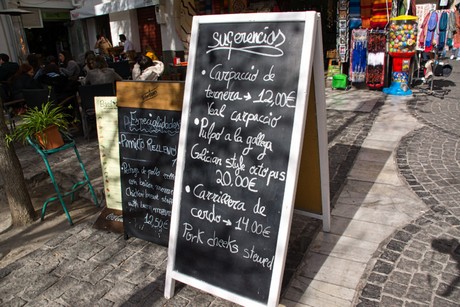 sugerencias
• Carpaccio de
ternera → 12,00€
Veal carpaccio
• Pulpo a la gallega
Galician style octopus
20.00€
• Carrillera de
cerdo → 14.00€
Pork cheeks stewed
Especialidades
Pimiento RELLENO
con bacon
12,50€